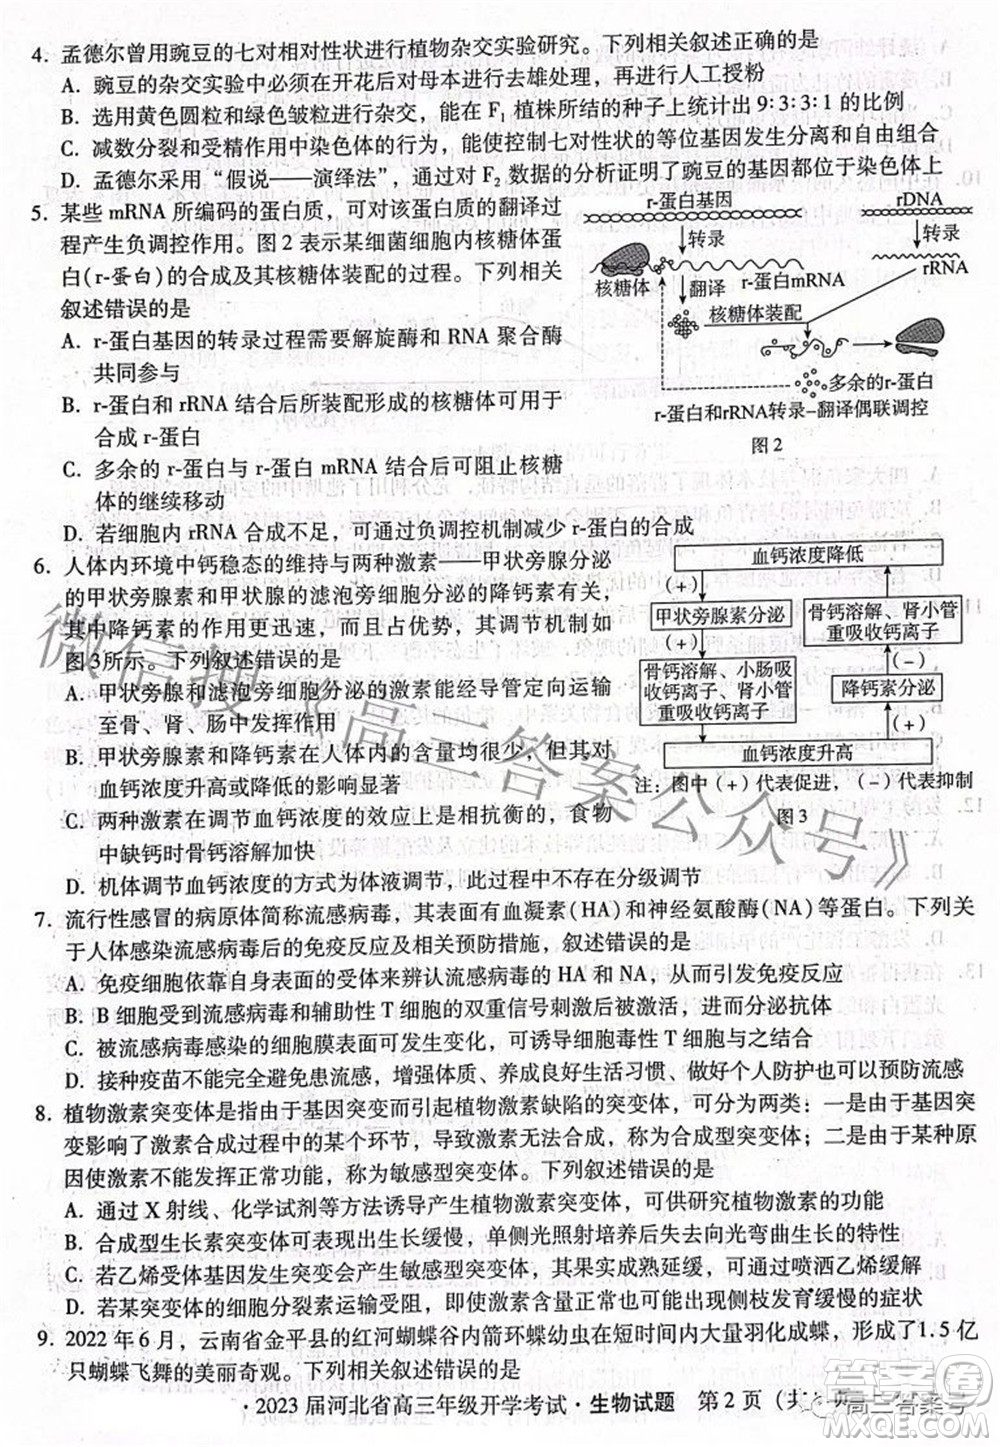 4. 孟德尔曾用豌豆的七对相对性状进行植物杂交实验研究。下列相关叙述正确的是
A. 豌豆的杂交实验中必须在开花后对母本进行去雄处理，再进行人工授粉
B. 选用黄色圆粒和绿色皱粒进行杂交，能在 F₁ 植株所结的种子上统计出 9∶3∶3∶1 的比例
C. 减数分裂和受精作用中染色体的行为，能使控制七对性状的等位基因发生分离和自由组合
D. 孟德尔采用“假说——演绎法”，通过对 F₂ 数据的分析证明了豌豆的基因都位于染色体上
5. 某些 mRNA 所编码的蛋白质，可对该蛋白质的翻译过
程产生负调控作用。图 2 表示某细菌细胞内核糖体蛋
白(r-蛋白)的合成及其核糖体装配的过程。下列相关
叙述错误的是
A. r-蛋白基因的转录过程需要解旋酶和 RNA 聚合酶
共同参与
B. r-蛋白和 rRNA 结合后所装配形成的核糖体可用于
合成 r-蛋白
C. 多余的 r-蛋白与 r-蛋白 mRNA 结合后可阻止核糖
体的继续移动
D. 若细胞内 rRNA 合成不足，可通过负调控机制减少 r-蛋白的合成
r-蛋白基因
rDNA
转录
转录
核糖体
r-蛋白mRNA
rRNA
翻译
核糖体装配
多余的r-蛋白
r-蛋白和rRNA转录-翻译偶联调控
图 2
6. 人体内环境中钙稳态的维持与两种激素——甲状旁腺分泌
的甲状旁腺素和甲状腺的滤泡旁细胞分泌的降钙素有关，
其中降钙素的作用更迅速，而且占优势，其调节机制如
图 3所示。下列叙述错误的是
A. 甲状旁腺和滤泡旁细胞分泌的激素能经导管定向运输
至骨、肾、肠中发挥作用
B. 甲状旁腺素和降钙素在人体内的含量均较少，但其对
血钙浓度升高或降低的影响显著
C. 两种激素在调节血钙浓度的效应上是相抗衡的，食物
中缺钙时骨钙溶解加快
D. 机体调节血钙浓度的方式为体液调节，此过程中不存在分级调节
血钙浓度降低
甲状旁腺素分泌
骨钙溶解、肾小管
重吸收钙离子
(+)
(-)
骨钙溶解、小肠吸
收钙离子、肾小管
重吸收钙离子
降钙素分泌
(+)
血钙浓度升高
注：图中(+)代表促进，(-)代表抑制
图 3
7. 流行性感冒的病原体简称流感病毒，其表面有血凝素(HA)和神经氨酸酶(NA)等蛋白。下列关
于人体感染流感病毒后的免疫反应及相关预防措施，叙述错误的是
A. 免疫细胞依靠自身表面的受体来辨认流感病毒的 HA 和 NA，从而发生免疫反应
B. B 细胞受到流感病毒和辅助性 T 细胞的双重信号刺激后即可增殖分化，进而分泌抗体
C. 被流感病毒感染的细胞膜表面可发生变化，可诱导细胞毒性 T 细胞与之结合
D. 接种疫苗是避免患流感，增强体质、养成良好生活习惯、做好个人防护也可预防流感
8. 植物激素突变体是指由于基因突变而引起植物激素缺陷的突变体，可分为两类：一是由于基因突
变影响了激素合成过程中的某个环节，导致激素无法合成，称为合成型突变体；二是由于某种原
因使激素不能发挥正常功能，称为敏感型突变体。下列叙述错误的是
A. 通过 X 射线、化学试剂等方法诱导产生植物激素突变体，可供研究植物激素的功能
B. 合成型生长素突变体可表现出生长缓慢，单侧光照射培养后失去向光弯曲生长的特性
C. 若乙烯受体基因发生突变产生敏感型突变体，其果实成熟延缓，可通过喷洒乙烯缓解
D. 若某突变体的细胞分裂素运输受阻，即使增施大量氮肥也可能出现侧枝发育缓慢的症状
9. 2022 年 6 月，云南省金平县的红河蝴蝶谷内箭环蝶幼虫在短时间内大量羽化成蝶，形成了1.5 亿
只蝴蝶飞舞的美丽奇观。下列相关叙述错误的是
·2023 届河北省高三年级开学考试·生物试题 第 2 页（共
微信搜《高三答案公众号》
高三答案号